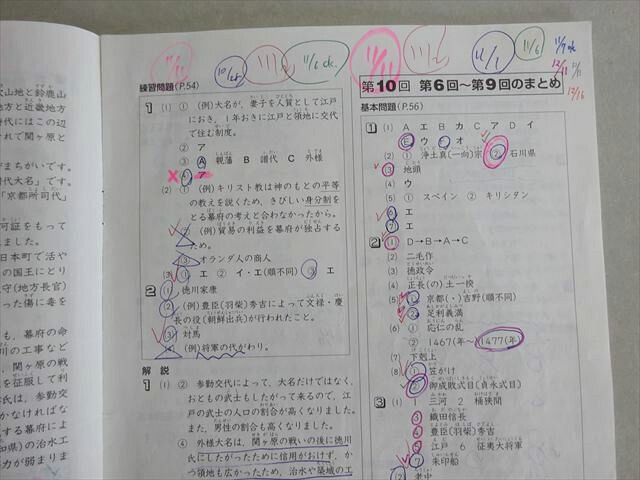 沢山地と鈴鹿山
地方と近畿地方
時代にはこの辺
れで関ヶ原と
まちがいです。
時代大名」です。
「京都所司代」
可証をもって
れました。
日本町で活や
の国王にとり
守(地方長官)
った傷に毒を
も、幕府の命
川の工事など
関ヶ原の戦
を征服して利
氏は、参勤交
かなければな
する幕府によ
知県)の治水工
力が弱まりま
11/6 ok.
11/11
11/2
11/1
11/6
12/16
練習問題(P.54)
1 (1) ① (例)大名が、妻子を人質として江戸
におき、1年おきに江戸と領地に交代
で住む制度。
② ア
③ A 親藩 B 譜代 C 外様
④ ア
(2) ① (例)キリスト教は神のもとの平等
の教えを説くため、きびしい身分制を
とる幕府の考えと合わなかったから。
② (例)貿易の利益を幕府が独占する
ため。
③ オランダ人の商人
(3) ① エ ② イ・エ(順不同) ③ エ
2 ① 徳川家康
② (例)豊臣(羽柴)秀吉によって文禄・慶
長の役(朝鮮出兵)が行われたこと。
③ 対馬
④ (例)将軍の代がわり。
解説
1 (1) ② 参勤交代によって、大名だけではなく、
おともの武士もしたがって来るので、江
戸の武士の人口の割合が高くなりました。
また、男性の割合も高くなりました。
④ 外様大名は、関ヶ原の戦いの後に徳川
氏にしたがったために信用がおけず、か
つ領地も広かったため、治水や築城の工
第10回 第6回〜第9回のまとめ
基本問題(P.56)
1 (1) A エ B カ C ア D イ
E ウ F オ
(2) ① 浄土真(一向)宗 ② 石川県
(3) 地頭
(4) ウ
(5) ① スペイン ② キリシタン
(6) エ
(7) エ
2 (1) D→B→A→C
(2) 二毛作
(3) 徳政令
(4) 正長(の)土一揆
(5) ① 京都(・)吉野(順不同)
② 足利義満
(6) ① 応仁の乱
② 1467(年〜)1477(年)
(7) 下剋上
(8) ① 笠がけ
② 御成敗式目(貞永式目)
3 (1) 1 三河 2 桶狭間
3 織田信長
4 豊臣(羽柴)秀吉
5 江戸 6 征夷大将軍
7 朱印船
(2) 老中